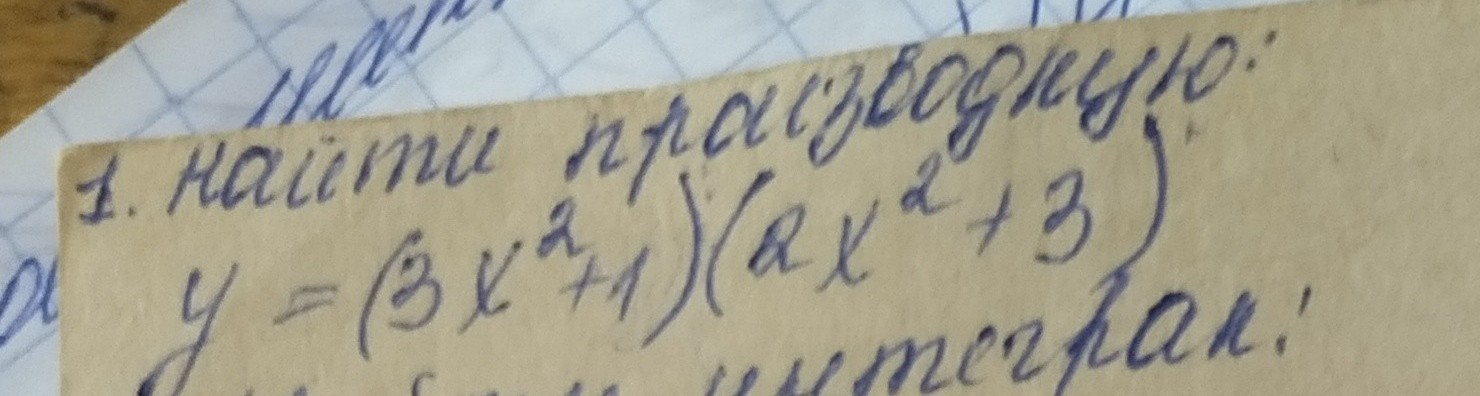 1. найти производную:
y = (3x²+1)(2x²+3)
интеграл: